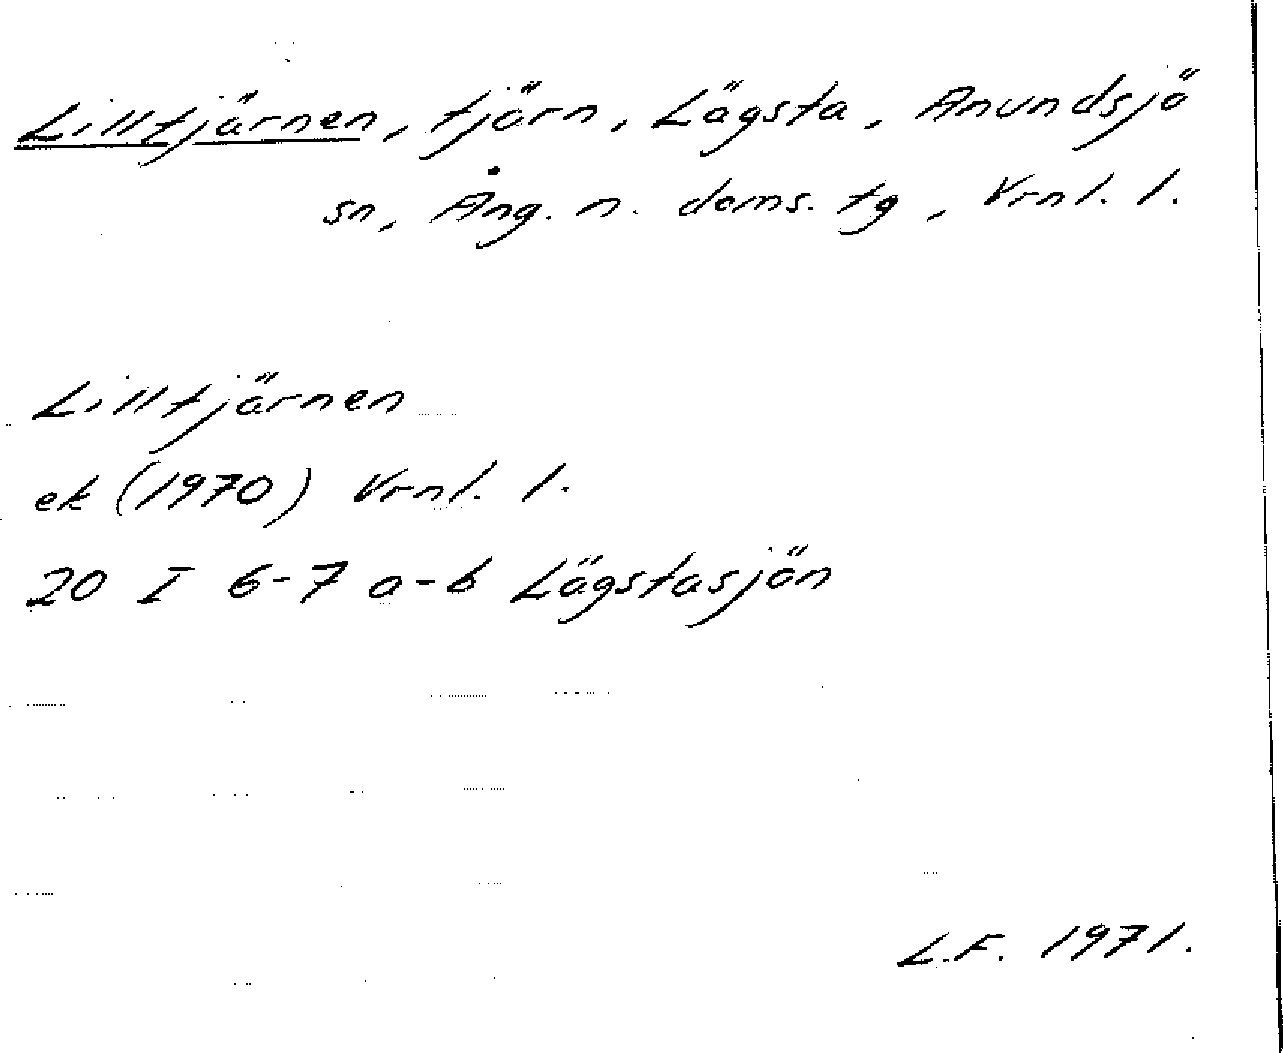 Lilltjärnen, tjärn, Lägsta, Anundsjö
sn, Ång. n. doms. tg, Vrnl. l.
Lilltjärnen
ek (1970) Vrnl. l.
20 I 6-7 a-b Lägstasjön
L.F. 1971.